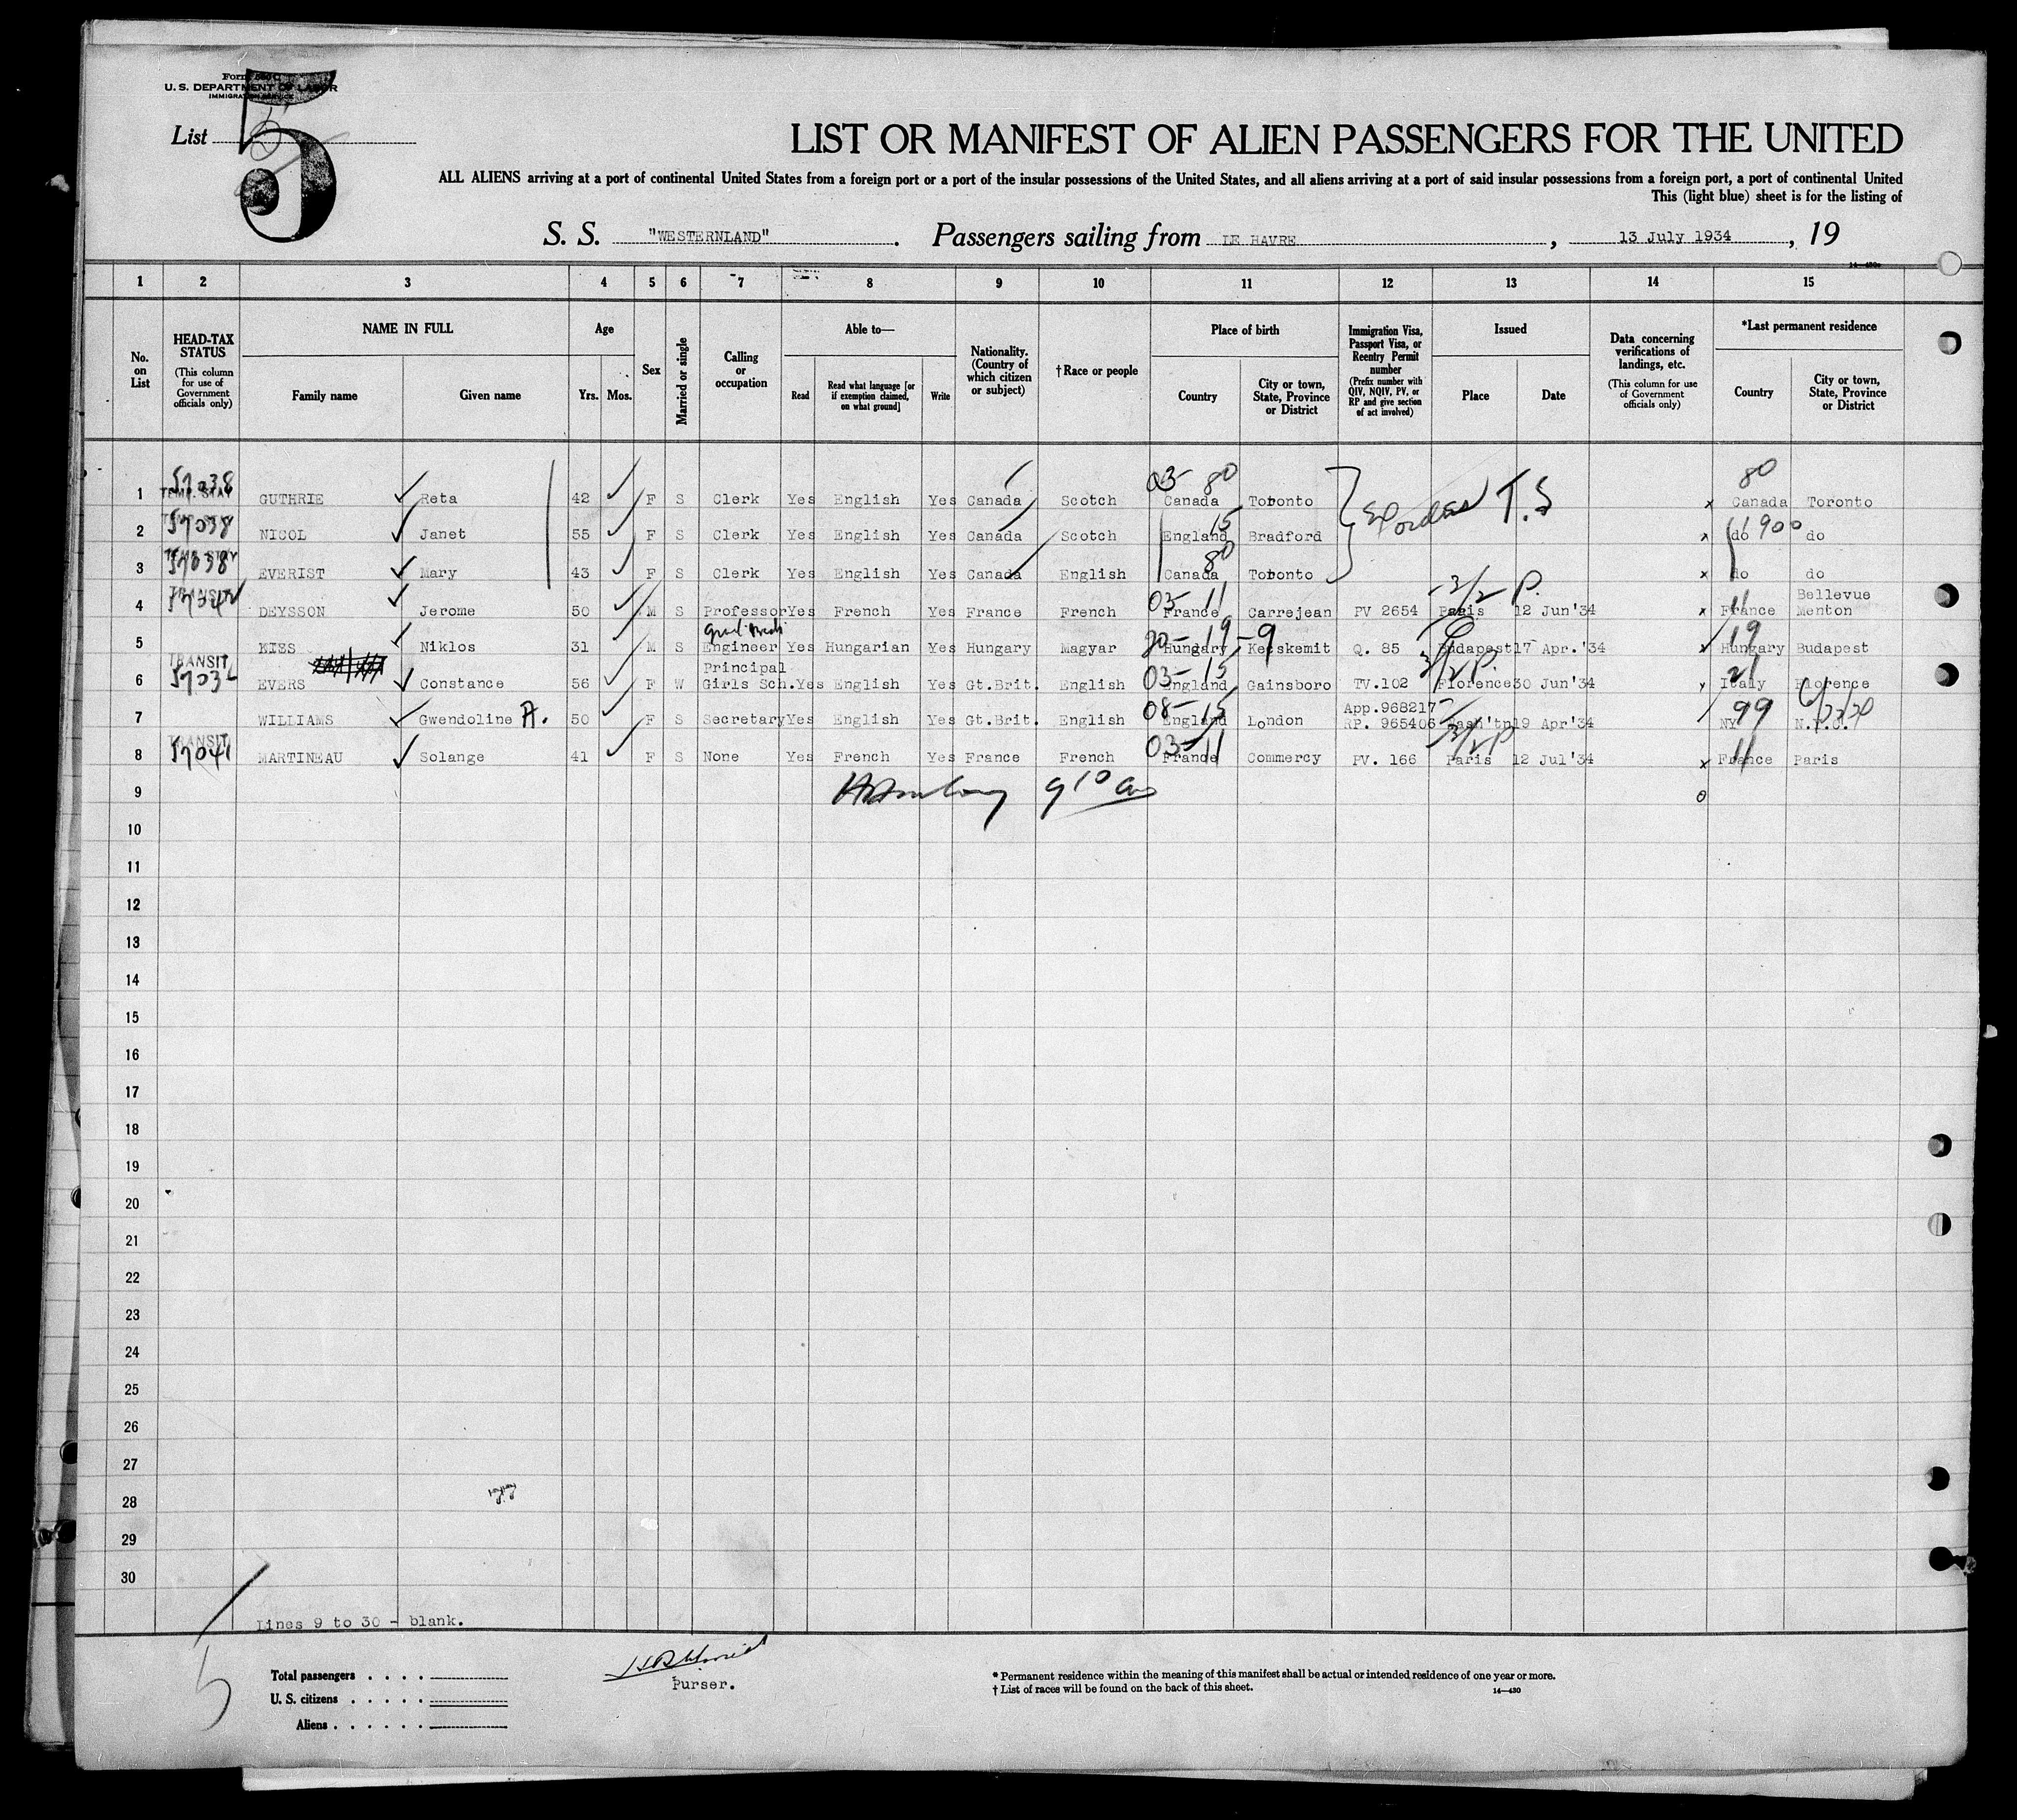 Form 500 C
U. S. DEPARTMENT OF LABOR
IMMIGRATION SERVICE
List 5
5
LIST OR MANIFEST OF ALIEN PASSENGERS FOR THE UNITED
ALL ALIENS arriving at a port of continental United States from a foreign port or a port of the insular possessions of the United States, and all aliens arriving at a port of said insular possessions from a foreign port, a port of continental United
This (light blue) sheet is for the listing of
S. S. "WESTERNLAND" . Passengers sailing from LE HAVRE , 13 July 1934 , 19
1 2 3 4 5 6 7 8 9 10 11 12 13 14 15
No. on List
HEAD-TAX STATUS (This column for use of Government officials only)
NAME IN FULL Family name Given name
Age Yrs. Mos.
Sex
Married or single
Calling or occupation
Able to— Read Read what language [or if exemption claimed, on what ground] Write
Nationality. (Country of which citizen or subject)
†Race or people
Place of birth Country City or town, State, Province or District
Immigration Visa, Passport Visa, or Reentry Permit number (Prefix number with QIV, NQIV, PV, or RP and give section of act involved)
Issued Place Date
Data concerning verifications of landings, etc. (This column for use of Government officials only)
*Last permanent residence Country City or town, State, Province or District
1 57038 TEMP. STAY GUTHRIE Reta 42 F S Clerk Yes English Yes Canada Scotch 03- 80 Canada Toronto T.S x 80 Canada Toronto
2 57038 NICOL Janet 55 F S Clerk Yes English Yes Canada Scotch 15 England Bradford x do 900 do
3 57038 EVERIST Mary 43 F S Clerk Yes English Yes Canada English 80 Canada Toronto x do do
4 TRANSIT DEYSSON Jerome 50 M S Professor Yes French Yes France French 03- 11 France Carrejean PV 2654 3/2 P. Paris 12 Jun'34 x 11 France Bellevue Menton
5 KIES Niklos 31 M S Engineer Yes Hungarian Yes Hungary Magyar 19-9 Hungary Kecskemit Q. 85 Budapest 17 Apr.'34 x 19 Hungary Budapest
6 TRANSIT EVERS Constance 56 F W Principal Girls Sch. Yes English Yes Gt.Brit. English 03- 15 England Gainsboro TV.102 3/2 P. Florence 30 Jun'34 21 Italy Florence
7 WILLIAMS Gwendoline A. 50 F S Secretary Yes English Yes Gt.Brit. English 08- 15 England London App.968217 RP. 965406 Wash'tn 19 Apr'34 99 NY N.Y.C.
8 TRANSIT 57041 MARTINEAU Solange 41 F S None Yes French Yes France French 03-11 France Commercy PV. 166 3/2 P Paris 12 Jul'34 x 11 France Paris
9
10
11
12
13
14
15
16
17
18
19
20
21
22
23
24
25
26
27
28
29
30
Lines 9 to 30 - blank.
5
Total passengers
U. S. citizens
Aliens
Purser.
* Permanent residence within the meaning of this manifest shall be actual or intended residence of one year or more.
† List of races will be found on the back of this sheet.
14—430